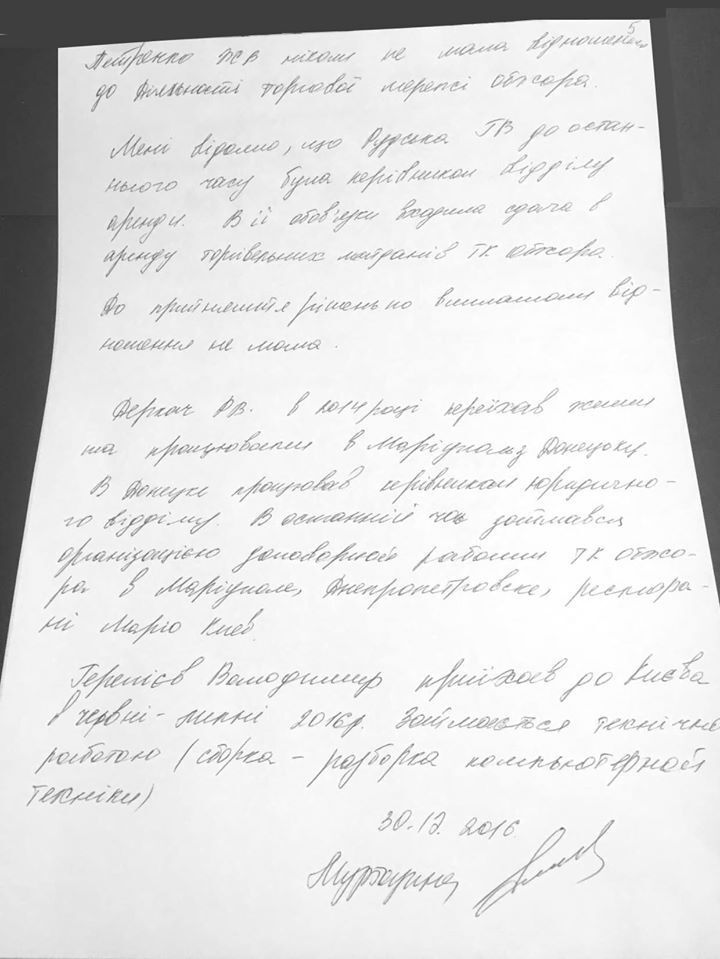 5
Петренко ніколи не мала відношення
до діяльності торгової мережі обжора.
Мені відомо, що Рудська ГВ до остан-
нього часу була керівником відділу
аренди. В її обов'язки входила сдача в
аренду торівельних майданів ТК обжора.
До прийняття рішень по виплатами від-
ношення не мала.
Деркач РВ. в 2014 році переїхав жити
та працювати в Маріуполь з Донецьку.
В Донецке працював керівником юридично-
го відділу. В останній час займався
організацією договорной работи ТК обжо-
ра в Маріуполе, Днепропетровске, рестора-
ні Маріо Киев.
Володимир приїхав до Києва
в червні-липні 2016р. Займається технічною
работою (сборка - разборка компьютерной
техніки)
30.12.2016